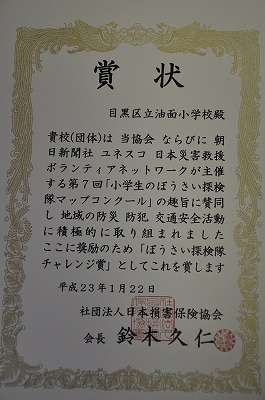 賞状
目黒区立油面小学校殿
貴校(団体)は 当協会 ならびに 朝
日新聞社 ユネスコ 日本災害救援
ボランティアネットワークが主催
する第7回「小学生のぼうさい探検
隊マップコンクール」の趣旨に賛同
し 地域の防災 防犯 交通安全活動
に積極的に取り組まれました
ここに奨励のため「ぼうさい探検隊
チャレンジ賞」としてこれを賞します
平成23年1月22日
社団法人日本損害保険協会
会長 鈴木久仁